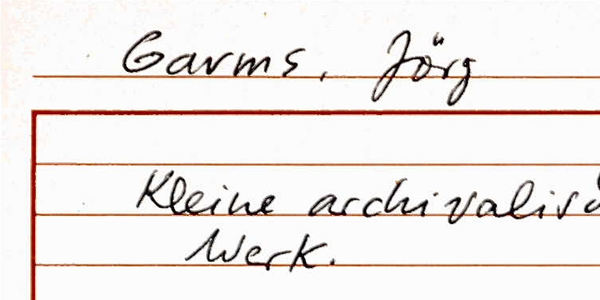 Garms, Jörg
Kleine archivalis
Werk.